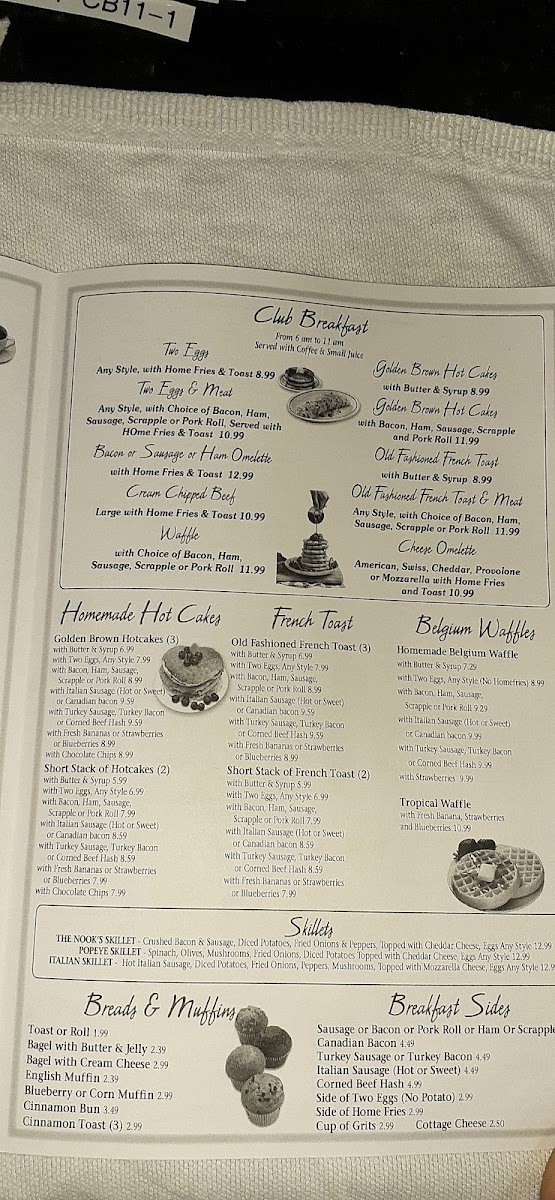 CB11-1
Club Breakfast
From 6 am to 11 am
Served with Coffee & Small Juice
Two Eggs
Any Style, with Home Fries & Toast 8.99
Two Eggs & Meat
Any Style, with Choice of Bacon, Ham,
Sausage, Scrapple or Pork Roll, Served with
HOme Fries & Toast 10.99
Bacon or Sausage or Ham Omelette
with Home Fries & Toast 12.99
Cream Chipped Beef
Large with Home Fries & Toast 10.99
Waffle
with Choice of Bacon, Ham,
Sausage, Scrapple or Pork Roll 11.99
Golden Brown Hot Cakes
with Butter & Syrup 8.99
Golden Brown Hot Cakes
with Bacon, Ham, Sausage, Scrapple
and Pork Roll 11.99
Old Fashioned French Toast
with Butter & Syrup 8.99
Old Fashioned French Toast & Meat
Any Style, with Choice of Bacon, Ham,
Sausage, Scrapple or Pork Roll 11.99
Cheese Omelette
American, Swiss, Cheddar, Provolone
or Mozzarella with Home Fries
and Toast 10.99
Homemade Hot Cakes
Golden Brown Hotcakes (3)
with Butter & Syrup 6.99
with Two Eggs, Any Style 7.99
with Bacon, Ham, Sausage,
Scrapple or Pork Roll 8.99
with Italian Sausage (Hot or Sweet)
or Canadian bacon 9.59
with Turkey Sausage, Turkey Bacon
or Corned Beef Hash 9.59
with Fresh Bananas or Strawberries
or Blueberries 8.99
with Chocolate Chips 8.99
Short Stack of Hotcakes (2)
with Butter & Syrup 5.99
with Two Eggs, Any Style 6.99
with Bacon, Ham, Sausage,
Scrapple or Pork Roll 7.99
with Italian Sausage (Hot or Sweet)
or Canadian bacon 8.59
with Turkey Sausage, Turkey Bacon
or Corned Beef Hash 8.59
with Fresh Bananas or Strawberries
or Blueberries 7.99
with Chocolate Chips 7.99
French Toast
Old Fashioned French Toast (3)
with Butter & Syrup 6.99
with Two Eggs, Any Style 7.99
with Bacon, Ham, Sausage,
Scrapple or Pork Roll 8.99
with Italian Sausage (Hot or Sweet)
or Canadian bacon 9.59
with Turkey Sausage, Turkey Bacon
or Corned Beef Hash 9.59
with Fresh Bananas or Strawberries
or Blueberries 8.99
Short Stack of French Toast (2)
with Butter & Syrup 5.99
with Two Eggs, Any Style 6.99
with Bacon, Ham, Sausage,
Scrapple or Pork Roll 7.99
with Italian Sausage (Hot or Sweet)
or Canadian bacon 8.59
with Turkey Sausage, Turkey Bacon
or Corned Beef Hash 8.59
with Fresh Bananas or Strawberries
or Blueberries 7.99
Belgium Waffles
Homemade Belgium Waffle
with Butter & Syrup 7.29
with Two Eggs, Any Style (No Homefries) 8.99
with Bacon, Ham, Sausage,
Scrapple or Pork Roll 9.29
with Italian Sausage (Hot or Sweet)
or Canadian bacon 9.99
with Turkey Sausage, Turkey Bacon
or Corned Beef Hash 9.99
with Strawberries 9.99
Tropical Waffle
with Fresh Banana, Strawberries
and Blueberries 10.99
Skillets
THE NOOK'S SKILLET - Crushed Bacon & Sausage, Diced Potatoes, Fried Onions & Peppers, Topped with Cheddar Cheese, Eggs Any Style 12.99
POPEYE SKILLET - Spinach, Olives, Mushrooms, Fried Onions, Diced Potatoes Topped with Cheddar Cheese, Eggs Any Style 12.99
ITALIAN SKILLET - Hot Italian Sausage, Diced Potatoes, Fried Onions, Peppers, Mushrooms, Topped with Mozzarella Cheese, Eggs Any Style 12.9
Breads & Muffins
Toast or Roll 1.99
Bagel with Butter & Jelly 2.39
Bagel with Cream Cheese 2.99
English Muffin 2.39
Blueberry or Corn Muffin 2.99
Cinnamon Bun 3.49
Cinnamon Toast (3) 2.99
Breakfast Sides
Sausage or Bacon or Pork Roll or Ham Or Scrapple
Canadian Bacon 4.49
Turkey Sausage or Turkey Bacon 4.49
Italian Sausage (Hot or Sweet) 4.49
Corned Beef Hash 4.99
Side of Two Eggs (No Potato) 2.99
Side of Home Fries 2.99
Cup of Grits 2.99 Cottage Cheese 2.50